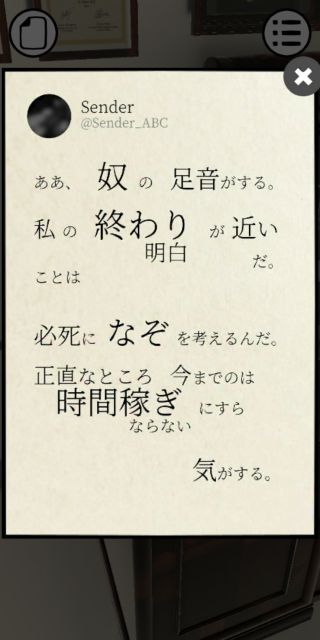 Sender
@Sender_ABC
ああ、 奴 の 足音がする。
私 の 終わり が 近い
ことは 明白 だ。
必死に なぞ を考えるんだ。
正直なところ 今までのは
時間稼ぎ にすら
ならない
気がする。